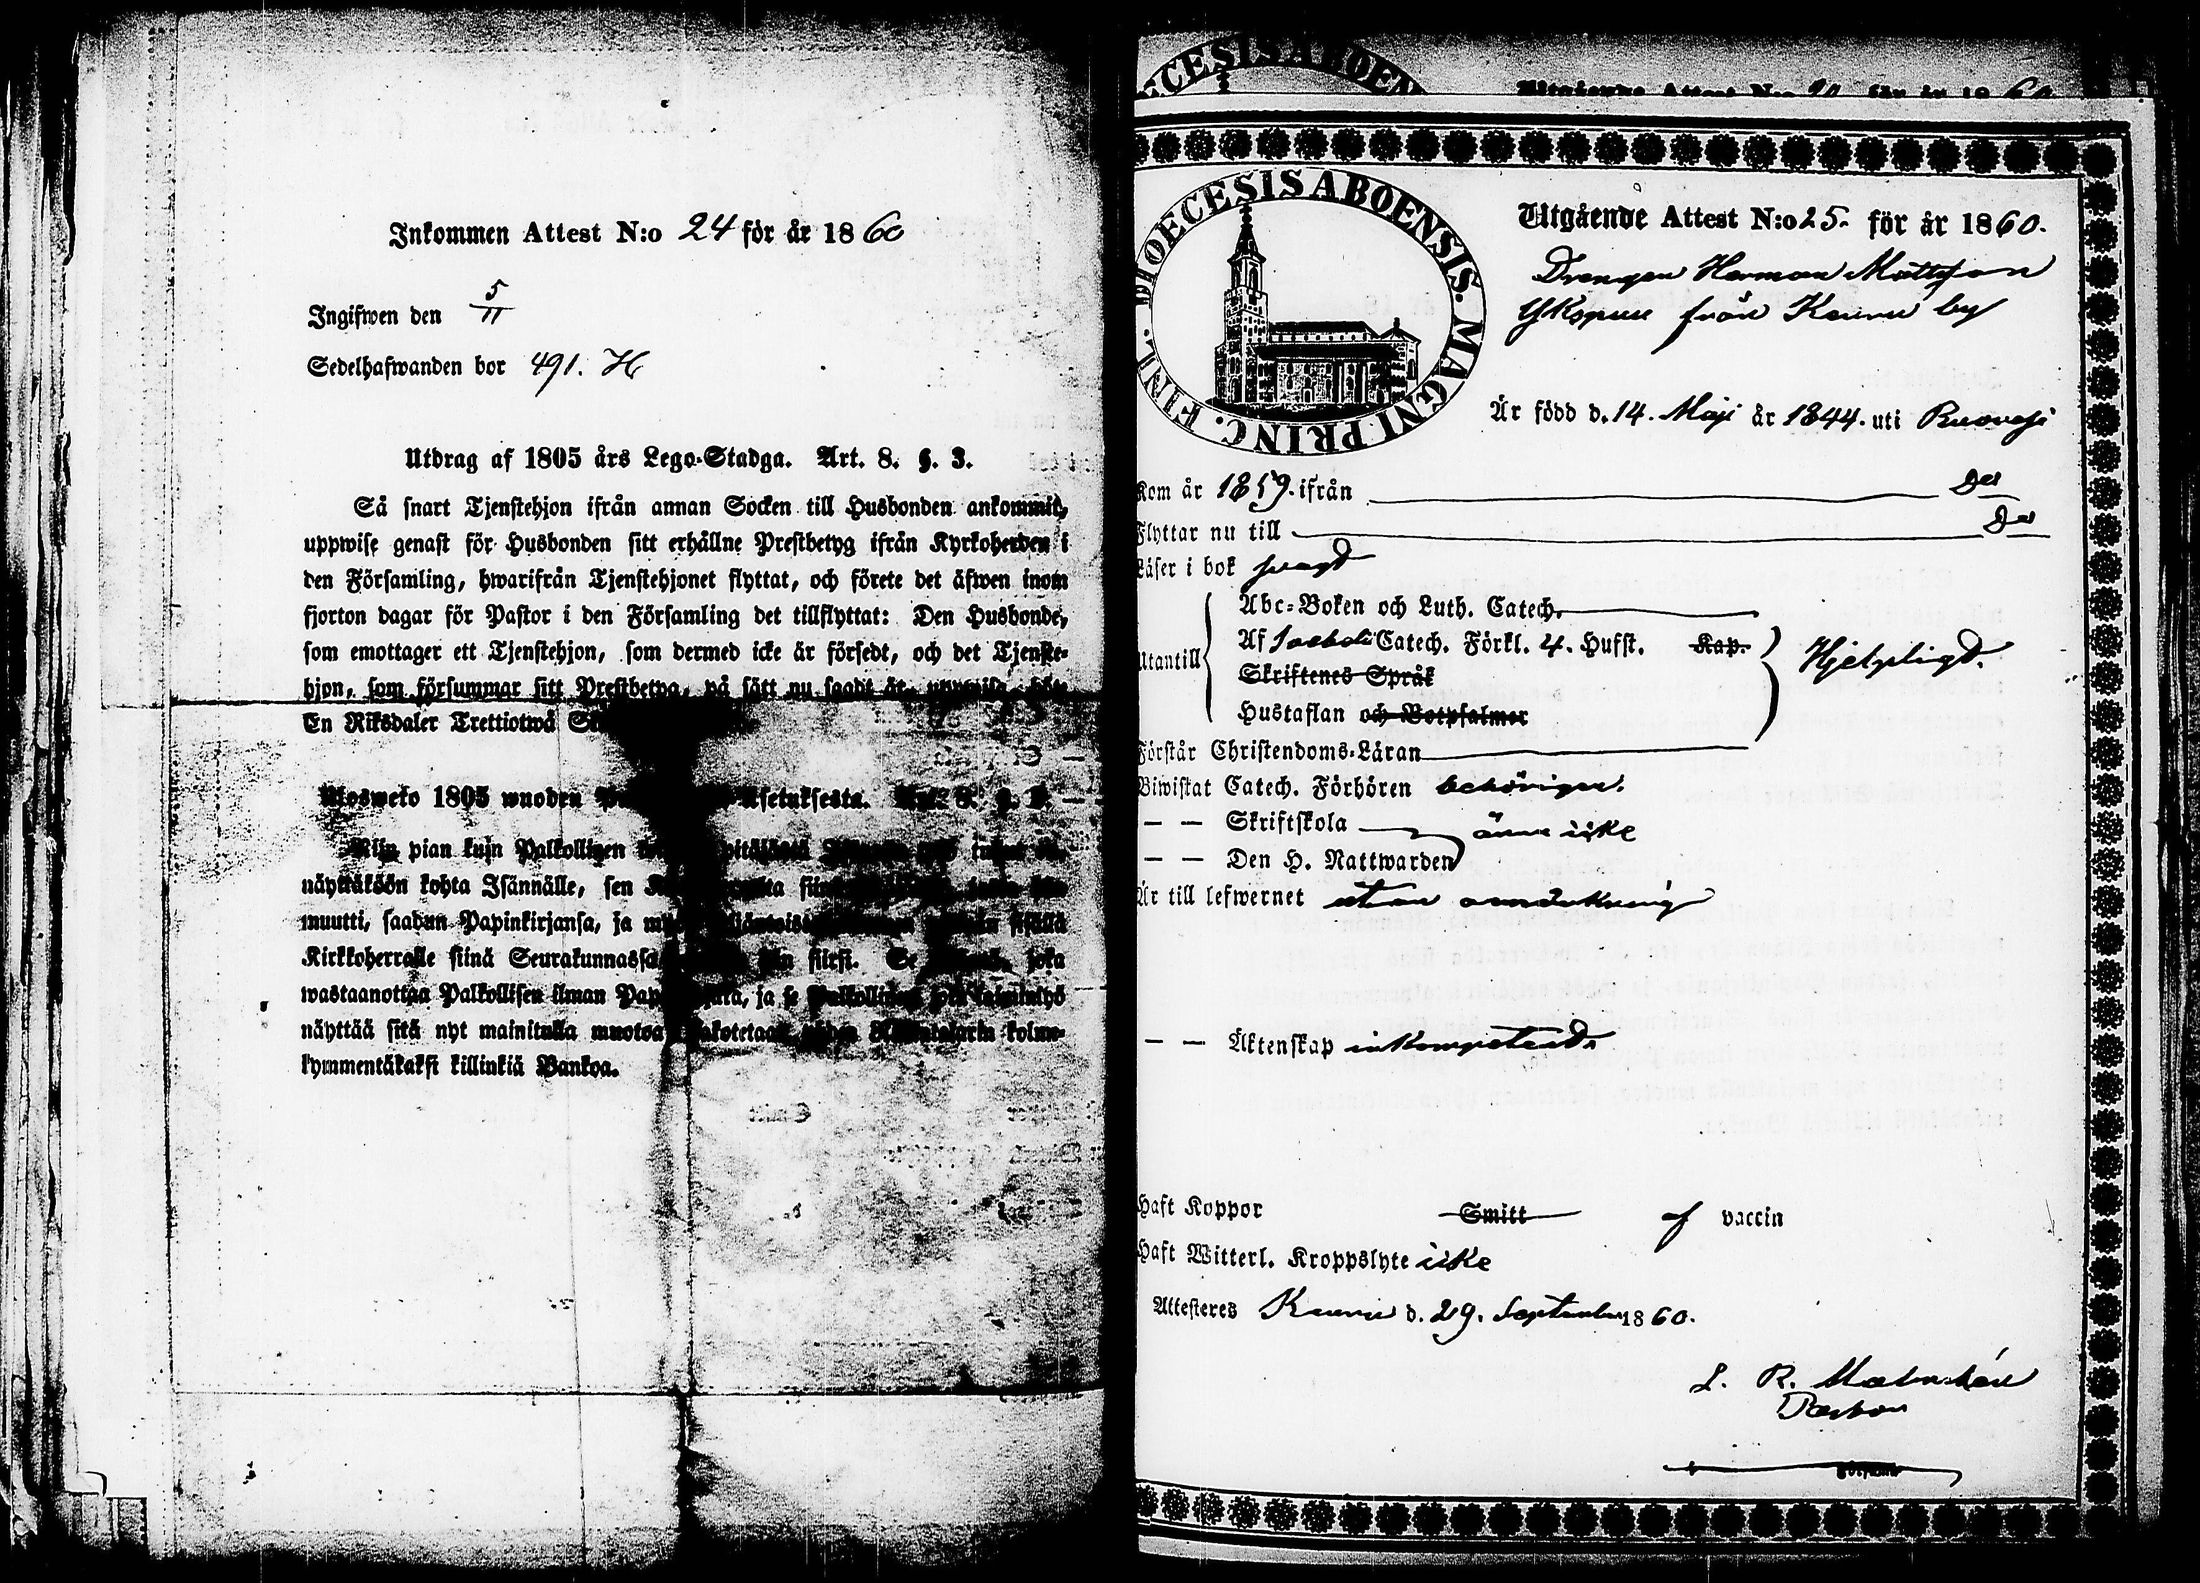 Inkommen Attest N:o 24 för år 1860
Ingifwen den 5/11
Sedelhafwanden bor 491. H
Utdrag af 1805 års Lego-Stadga. Art. 8. §. 3.
Så snart Tjenstehjon ifrån annan Socken till Husbonden ankommit,
uppwise genast för Husbonden sitt erhållne Prestbetyg ifrån Kyrkoherden i
den Församling, hwarifrån Tjenstehjonet flyttat, och förete det äfwen inom
fjorton dagar för Pastor i den Församling det tillflyttat: Den Husbonde,
som emottager ett Tjenstehjon, som dermed icke är försedt, och det Tjenste-
hjon, som försummar sitt Prestbetyg, på sätt nu sagdt är, uppwisa, böte
En Riksdaler Trettiotwå
Ulosweto 1805 wuoden Asetuksesta. Art. 8. §. 3.
Niin pian kuin Palkollinen
näyttäköön kohta Isännälle, sen
muutti, saadun Papinkirjansa, ja
Kirkkoherralle siinä Seurakunnassa siirsi. Se joka
wastaanottaa Palkollisen ilman ja se
näyttää sitä nyt mainitulla muotoa kolme-
kymmentäkaksi killinkiä Bankoa.
DIOECESIS ABOEN
Utgående Attest N:o för år 1860
DIOECESIS ABOENSIS. MAGNI PRINC. FINL.
Utgående Attest N:o 25. för år 1860.
Drengen Herman Mattsson
Ykspuu från Keuru by
Är född d. 14. Maji år 1844. uti Ruovesi
Kom år 1859. ifrån Do
Flyttar nu till Do
Läser i bok svagt
Utantill
Abc-Boken och Luth. Catech.
Af Catech. Förkl. 4. Hufst. Kap.
Skriftenes Språk
Hustaflan och Botpsalmer
Hjelpligt.
Förstår Christendoms-Läran
Biwistat Catech. Förhören behörigen.
— — Skriftskola ännu icke
— — Den H. Nattwarden
Är till lefwernet utan anmärkning
— — Äktenskap inkompetent.
Haft Koppor Smitt af vaccin
Haft Witterl. Kroppslyte icke
Attesteres Keuru d. 29. September 1860.
L. R. Malmstén
Pastor